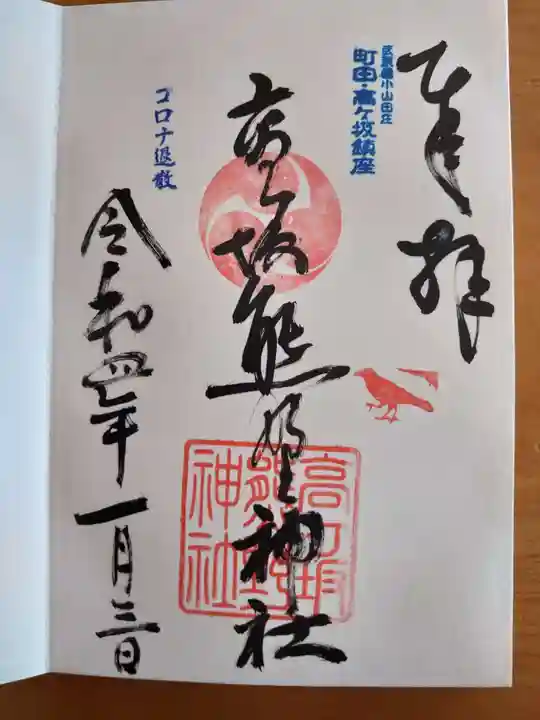 奉拝
武蔵國小山田庄
町田・高ヶ坂鎮座
高ヶ坂熊野神社
高ヶ坂
熊野
神社
コロナ退散
令和四年一月三日